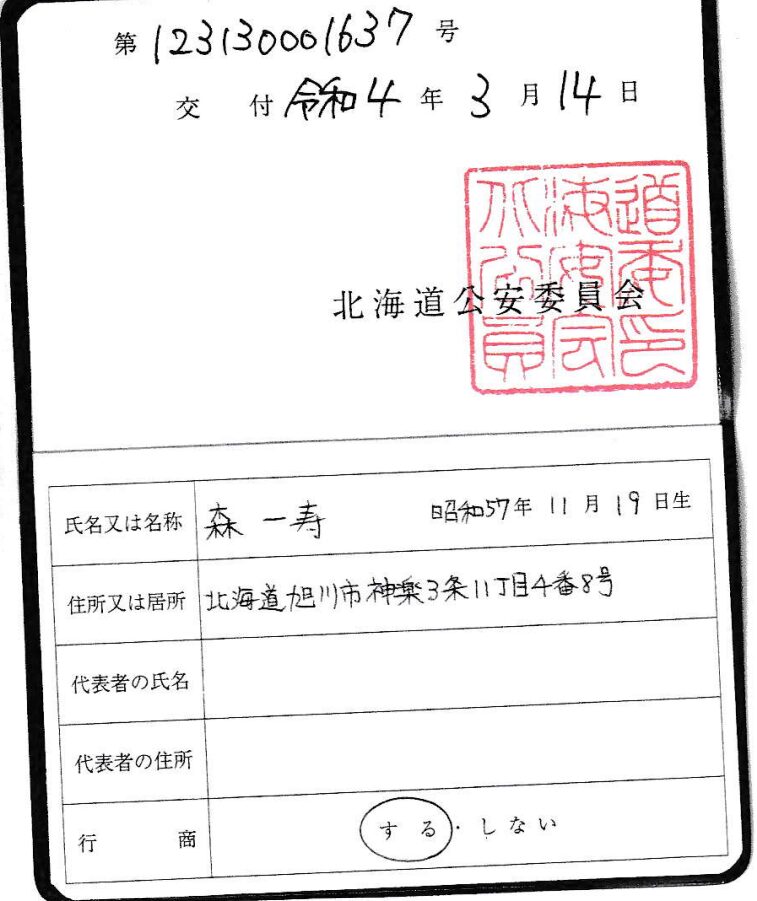 第123130001637号
交 付 令和4年3月14日
北海道公安委員会
氏名又は名称 森 一寿 昭和57年11月19日生
住所又は居所 北海道旭川市神楽3条11丁目4番8号
代表者の氏名
代表者の住所
行 商 する・しない
道委印
海安会
北公員